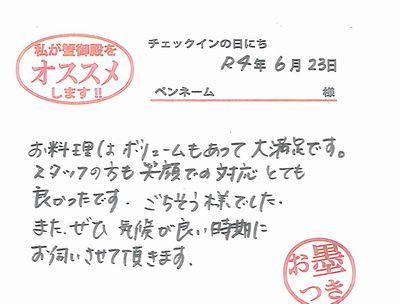 私が蟹御殿を
オススメ
します!!
チェックインの日にち
R4年6月23日
ペンネーム 様
お料理はボリュームもあって大満足です。
スタッフの方も笑顔での対応とても
良かったです。ごちそう様でした。
また、ぜひ 気候が良い時期に
お伺いさせて頂きます。
お墨
つき